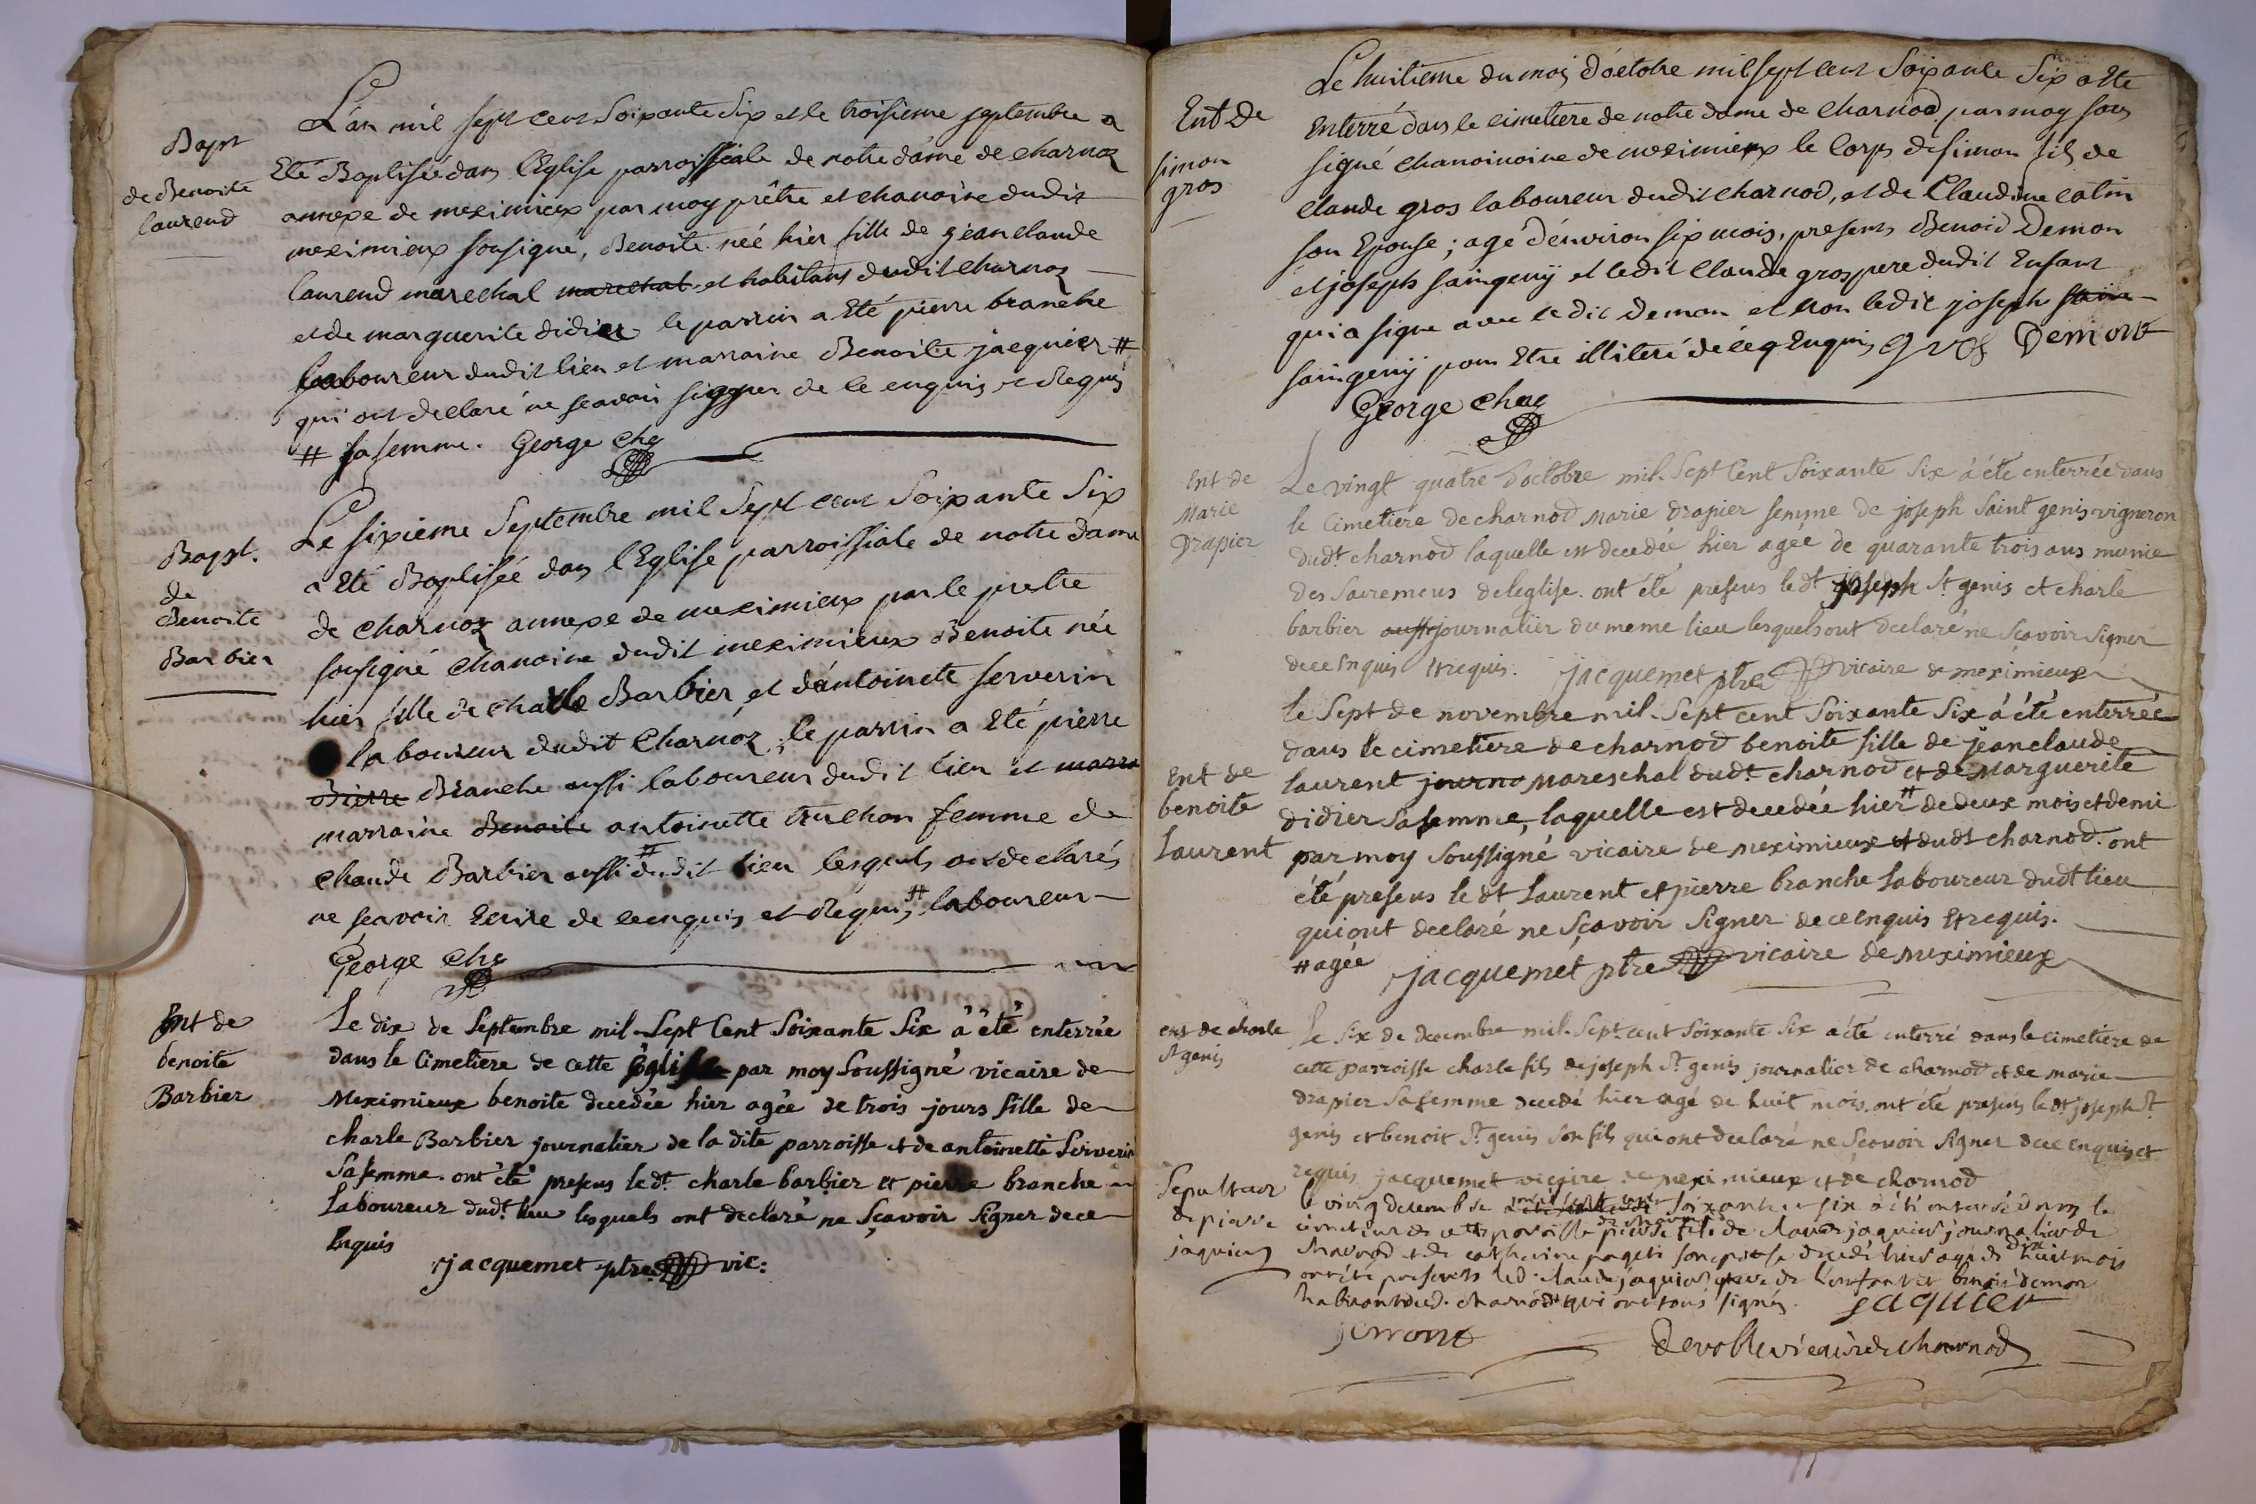 Bapt
de Benoite
laurend
L'an mil sept cent Soixante Six et le troisieme septembre a
Eté Baptisée dans l'Eglise parroissiale de notre dame de charnoz
annexe de meximieux par moy prêtre et chanoine dudit
meximieux sousigné, Benoite née hier fille de jean claude
laurend marechal marechal et habitant dudit charnoz
et de marguerite didier le parrin a Eté pierre branche
laboureur dudit lieu et marraine Benoite jacquier #
qui ont declaré ne scavoir signer de ce enquis et Requis
# sa femme. George che
Bapt.
de
Benoite
Barbier
Le sixieme Septembre mil Sept cent Soixante Six
a Eté Baptisée dans l'Eglise parroissiale de notre dame
de charnoz annexe de meximieux par le prestre
sousigné chanoine dudit meximieux Benoite née
hier fille de charle Barbier et d'antoinete serverin
laboureur dudit Charnoz, le parrin a Eté pierre
Bierre Branche aussi laboureur dudit lieu et marra
marraine Benoite antoinette truchon femme de
claude Barbier aussi # dudit lieu lesquels ont declarés
ne scavoir Ecrire de ce enquis et Requis # laboureur
George che
Ent de
benoite
Barbier
Le dix de Septembre mil Sept Cent Soixante Six à été enterrée
dans le Cimetiere de cette église par moy Soussigné vicaire de
Meximieux benoite decedée hier agée de trois jours fille de
charle Barbier journalier de la dite parroisse et de antoinette Serverin
Sa femme. ont été presens le dt. charle barbier et pierre branche
Laboureur dudt. lieu lesquels ont declaré ne Sçavoir Signer de ce
Enquis
jacquemet ptre vic:
Ent de
simon
gros
Le huitieme du mois d'octobre mil sept cent Soixante Six a Eté
Enterré dans le cimetiere de notre dame de Charnod par moy sous
signé chanoinoine de meximieux le Corps de simon fils de
claude gros laboureur dudit charnod, et de Claudine catin
son Epouse; agé d'environ six mois, presents Benoid Demon
et joseph saingeny et ledit Claude gros pere dudit Enfant
qui a signe avec ledit Demon et non ledit joseph sain
saingeny pour Etre illiteré de ce q Enquis gros Demont
George che
Ent de
Marie
Drapier
Le vingt quatre d'octobre mil Sept Cent Soixante Six à été enterrée dans
le Cimetiere de charnod Marie drapier femme de joseph Saint genis vigneron
dudt. charnod laquelle est decedée hier agée de quarante trois ans munie
des Sacremens de leglise. ont été presens le dt. joseph St. genis et charle
barbier aussi journalier du meme lieu lesquels ont declaré ne Sçavoir Signer
de ce Enquis et requis. jacquemet ptre vicaire de meximieux
Ent de
benoite
Laurent
le Sept de novembre mil Sept cent Soixante Six à été enterrée
dans le cimetiere de charnod benoite fille de jean claude
laurent journa Mareschal dudt. charnod et de Marguerite
didier Sa femme, laquelle est decedée hier # de deux mois et demi
par moy Soussigné vicaire de meximieux et dudt charnod. ont
été presens le dt Laurent et pierre branche Laboureur dudt lieu
qui ont declaré ne Sçavoir Signer de ce Enquis Et requis.
# agée jacquemet ptre vicaire de meximieux
ent de charle
St. genis
Le Six de decembre mil Sept cent Soixante Six à été enterré dans le cimetiere de
cette parroisse charle fils de joseph St. genis journalier de charnod et de marie
drapier Sa femme decedé hier agé de huit mois. ont été presens le dt. joseph St.
genis et benoit St. genis Son fils qui ont declaré ne Scavoir Signer de ce enquis et
requis jacquemet vicaire de meximieux et de charnod
Sepulteur
de pierre
jaquier
le ving decembre mil sept cent soixante six a été enterré dans le
cimetier de cette paroisse pierre fils de claude jaquier journalier de
charnod et de catherine pageti son epouse decedé hier agé de dix huit mois
ont été presents led. claude jaquier pere de l'enfant et benoit demon
habitant dud. charnod qui ont tous signés. jaquier
demont devolle vicaire de charnod